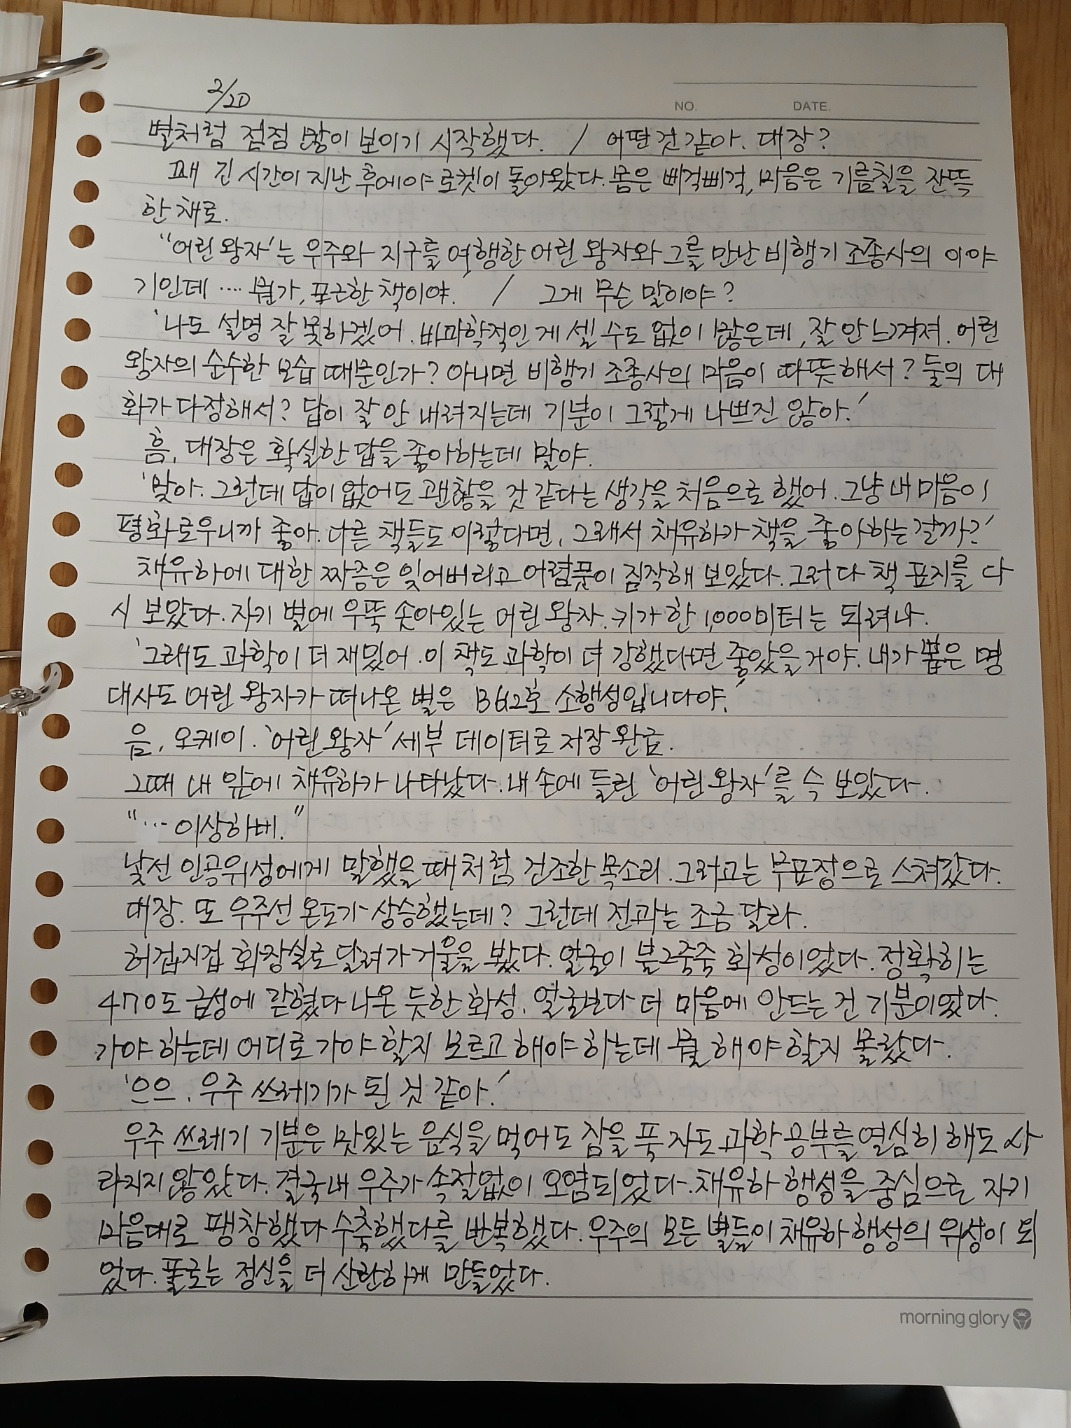 2/20
NO. DATE.
별처럼 점점 많이 보이기 시작했다. / 어떤 것 같아. 대장?
꽤 긴 시간이 지난 후에야 로켓이 돌아왔다. 몸은 삐걱삐걱, 마음은 기름칠을 잔뜩
한 채로.
"어린 왕자'는 우주와 지구를 여행한 어린 왕자와 그를 만난 비행기 조종사의 이야
기인데 .... 뭔가, 포근한 책이야.' / 그게 무슨 말이야?
'나도 설명 잘 못하겠어. 비과학적인 게 셀 수도 없이 많은데, 잘 안 느껴져. 어린
왕자의 순수한 모습 때문인가? 아니면 비행기 조종사의 마음이 따뜻해서? 둘의 대
화가 다정해서? 답이 잘 안 내려지는데 기분이 그렇게 나쁘진 않아.'
흠, 대장은 확실한 답을 좋아하는데 말야.
'맞아. 그런데 답이 없어도 괜찮을 것 같다는 생각을 처음으로 했어. 그냥 내 마음이
평화로우니까 좋아. 다른 책들도 이렇다면, 그래서 채유하가 책을 좋아하는 걸까?'
채유하에 대한 짜증은 잊어버리고 어렴풋이 짐작해 보았다. 그러다 책 표지를 다
시 보았다. 자기 별에 우뚝 솟아있는 어린 왕자. 키가 한 1,000미터는 되려나.
'그래도 과학이 더 재밌어. 이 책도 과학이 더 강했다면 좋았을 거야. 내가 뽑은 명
대사도 어린 왕자가 떠나온 별은 B612호 소행성입니다야.'
음, 오케이. '어린 왕자' 세부 데이터로 저장 완료.
그때 내 앞에 채유하가 나타났다. 내 손에 들린 '어린 왕자'를 슥 보았다.
"… 이상하네."
낯선 인공위성에게 말했을 때처럼 건조한 목소리. 그러고는 무표정으로 스쳐갔다.
대장. 또 우주선 온도가 상승했는데? 그런데 전과는 조금 달라.
허겁지겁 화장실로 달려가 거울을 봤다. 얼굴이 불그죽죽 화성이었다. 정확히는
470도 금성에 갇혔다 나온 듯한 화성. 얼굴보다 더 마음에 안드는 건 기분이었다.
가야 하는데 어디로 가야 할지 모르고 해야 하는데 뭘 해야 할지 몰랐다.
'으으. 우주 쓰레기가 된 것 같아.'
우주 쓰레기 기분은 맛있는 음식을 먹어도 잠을 푹 자도 과학 공부를 열심히 해도 사
라지지 않았다. 결국 내 우주가 속절없이 오염되었다. 채유하 행성을 중심으로 자기
마음대로 팽창했다 수축했다를 반복했다. 우주의 모든 별들이 채유하 행성의 위성이 되
었다. 플로는 정신을 더 산란하게 만들었다.
morning glory